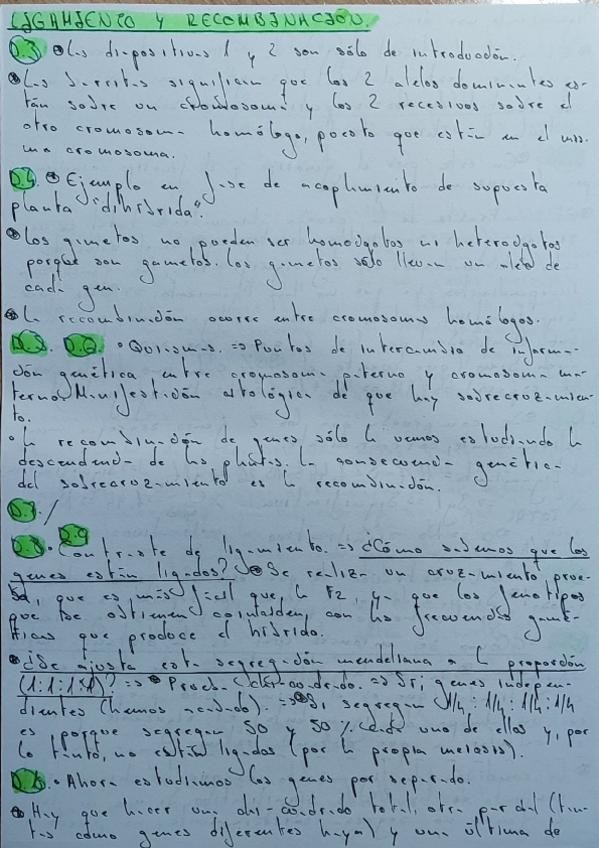 LIGAMIENTO Y RECOMBINACIÓN.
D.3 • Las diapositivas 1 y 2 son sólo de introducción.
• Las barritas significan que los 2 alelos dominantes es-
tán sobre un cromosoma y los 2 recesivos sobre el
otro cromosoma homólogo, puesto que están en el mis-
mo cromosoma.
D.4. • Ejemplo en fase de acoplamiento de supuesta
planta "dihíbrida".
• Los gametos no pueden ser homocigotos ni heterocigotos
porque son gametos. Los gametos sólo llevan un alelo de
cada gen.
• La recombinación ocurre entre cromosomas homólogos.
D.5. D.6. • Quiasmas. => Puntos de intercambio de informa-
ción genética entre cromosoma paterno y cromosoma ma-
terno. Manifestación citológica de que hay sobrecruzamien-
to.
• La recombinación de genes sólo la vemos estudiando la
descendencia de las plantas. La consecuencia genética
del sobrecruzamiento es la recombinación.
D.7. /
D.8 • D.9 Contraste de ligamiento. => ¿Cómo sabemos que los
genes están ligados? • Se realiza un cruzamiento prue-
ba, que es más fácil que la F2, ya que los fenotipos
que se obtienen coinciden con las frecuencias gamé-
ticas que produce el híbrido.
• ¿Se ajusta esta segregación mendeliana a la proporción
(1:1:1:1)? => • Prueba chi-cuadrado. => Si; genes indepen-
dientes (hemos acabado). => • Si segregan 1/4 : 1/4 : 1/4 : 1/4
es porque segregan 50 y 50 % cada uno de ellos y, por
lo tanto, no están ligados (por la propia meiosis).
• Ahora estudiamos los genes por separado.
• Hay que hacer una chi-cuadrado total, otra parcial (tan-
tas como genes diferentes haya) y una última de